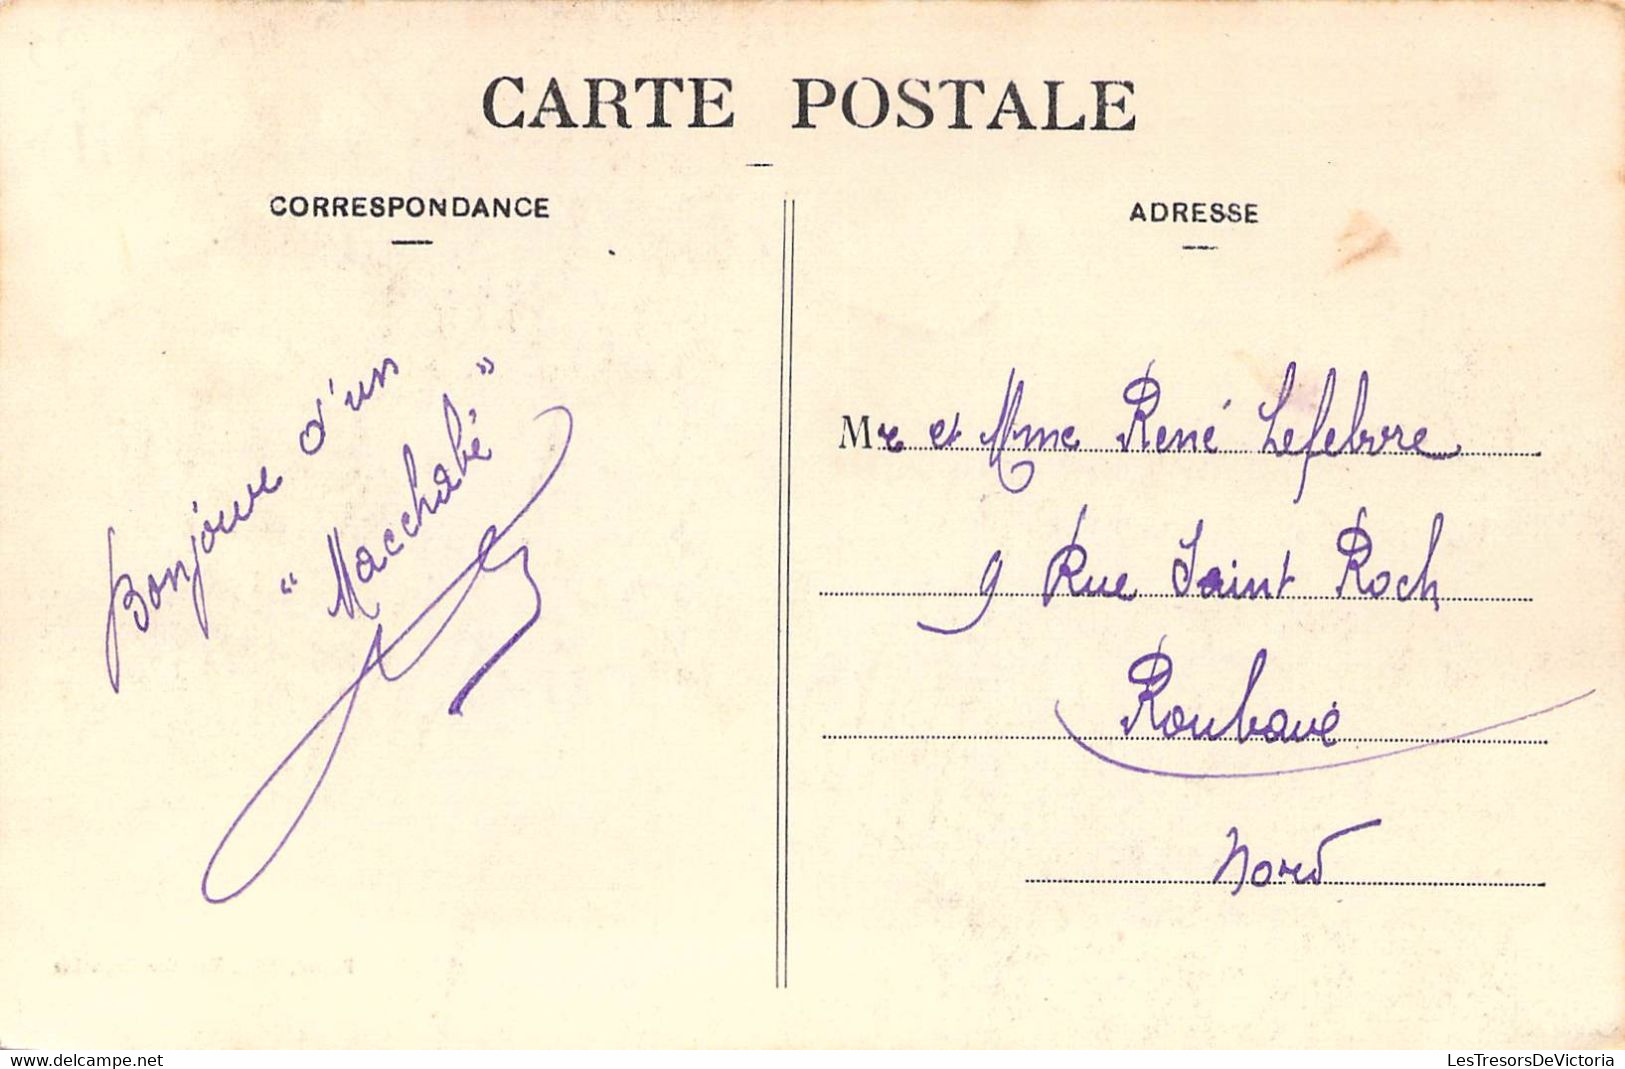 CARTE POSTALE
CORRESPONDANCE
Bonjour d'un
" Macchabé "
ADRESSE
Mr et Mme René Lefebvre
9 Rue Saint Roch
Roubaix
Nord
www.delcampe.net
LesTresorsDeVictoria